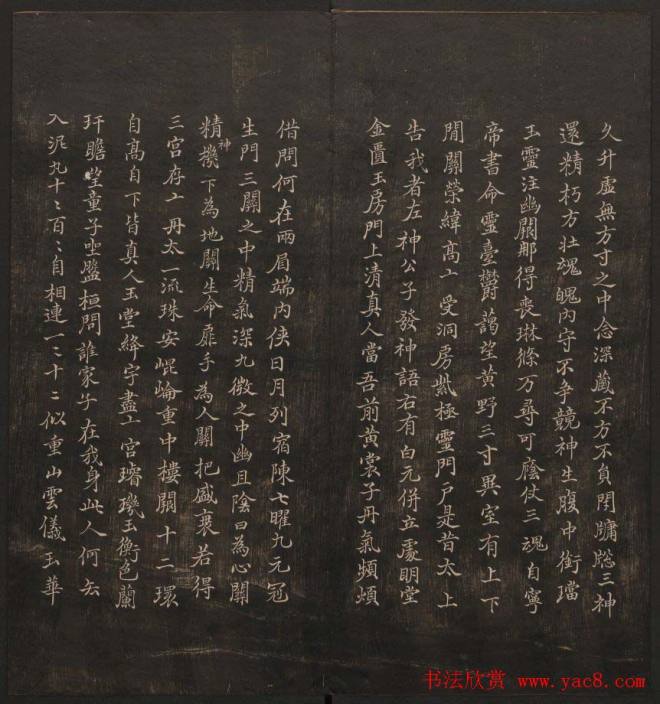 久升虛無方寸之中念深藏不方不負閉牖牎三神
還精朽方壯魂魄內守不爭競神生腹中銜璫
玉靈注幽闕那得喪琳條万尋可廕仗三魂自寧
帝書命靈臺欝藹望黃野三寸異室有上下
閒關榮緯高丄受洞房紫極靈門戶是昔太上
告我者左神公子發神語右有白元併立處明堂
金匱玉房門上清真人當吾前黃裳子丹氣頻煩
借問何在兩眉端內俠日月列宿陳七曜九元冠
生門三關之中精氣深九微之中幽且陰口為心關
精神機下為地關生命扉手為人關把盛衰若得
三宮存丄丹太一流珠安崐崘重中樓閣十二環
自高自下皆真人玉堂絳宇盡丄宮璿璣玉衡色蘭
玕瞻望童子坐盤桓問誰家子在我身此人何去
入泥丸千〻百〻自相連一〻十二似重山雲儀玉華
书法欣赏 www.yac8.com